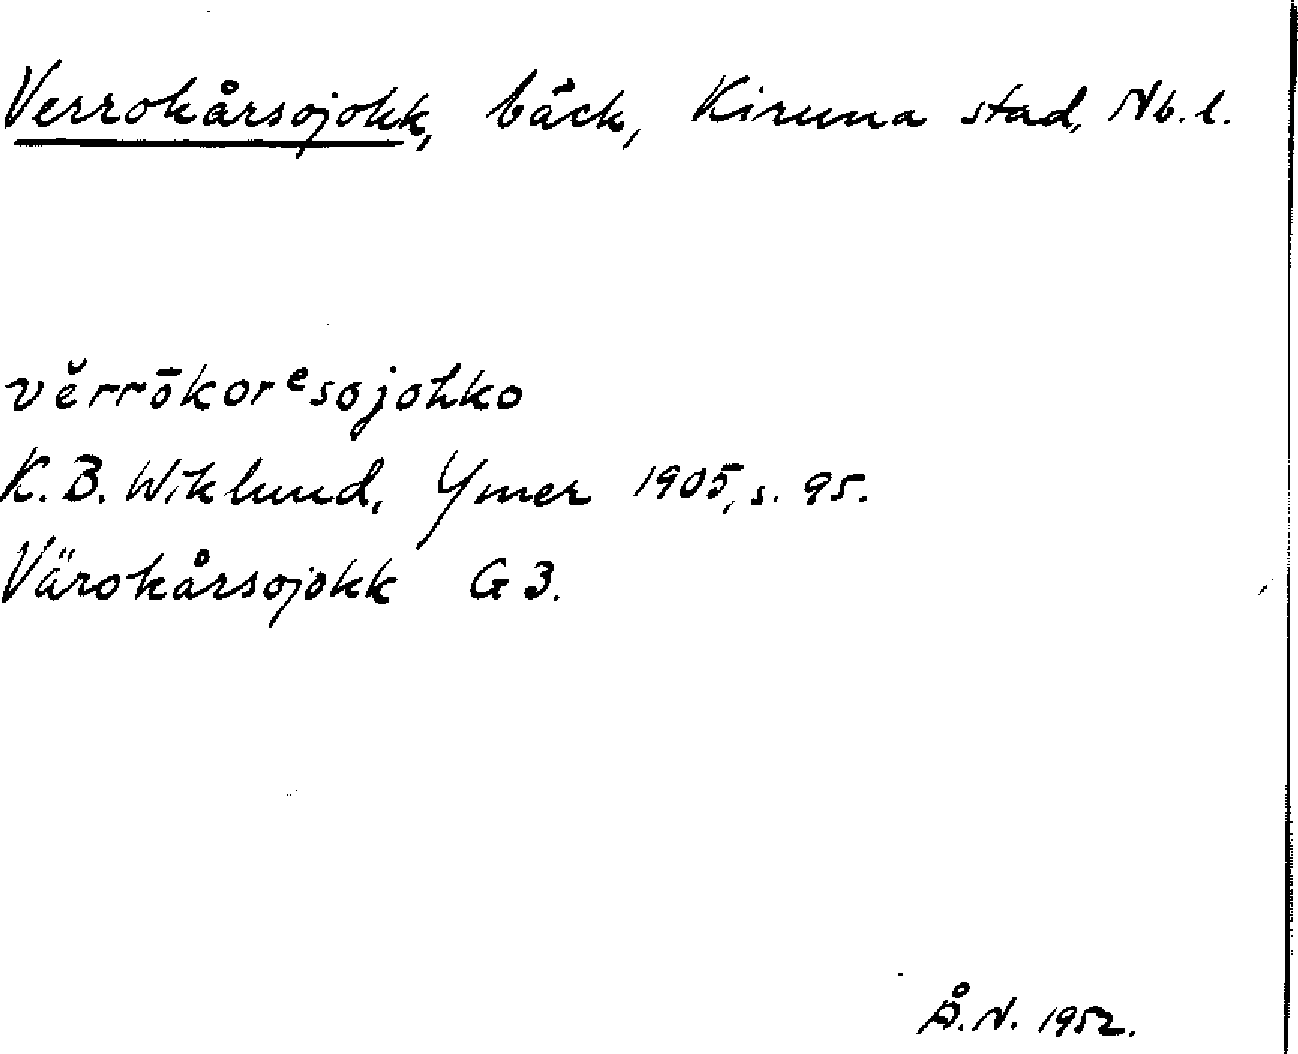 Verrokårsojokk, bäck, Kiruna stad, Nb. l.
vĕrrōkorᵉsojohko
K. B. Wiklund, Ymer 1905, s. 95.
Värokårsojokk G 3.
Å. N. 1952.